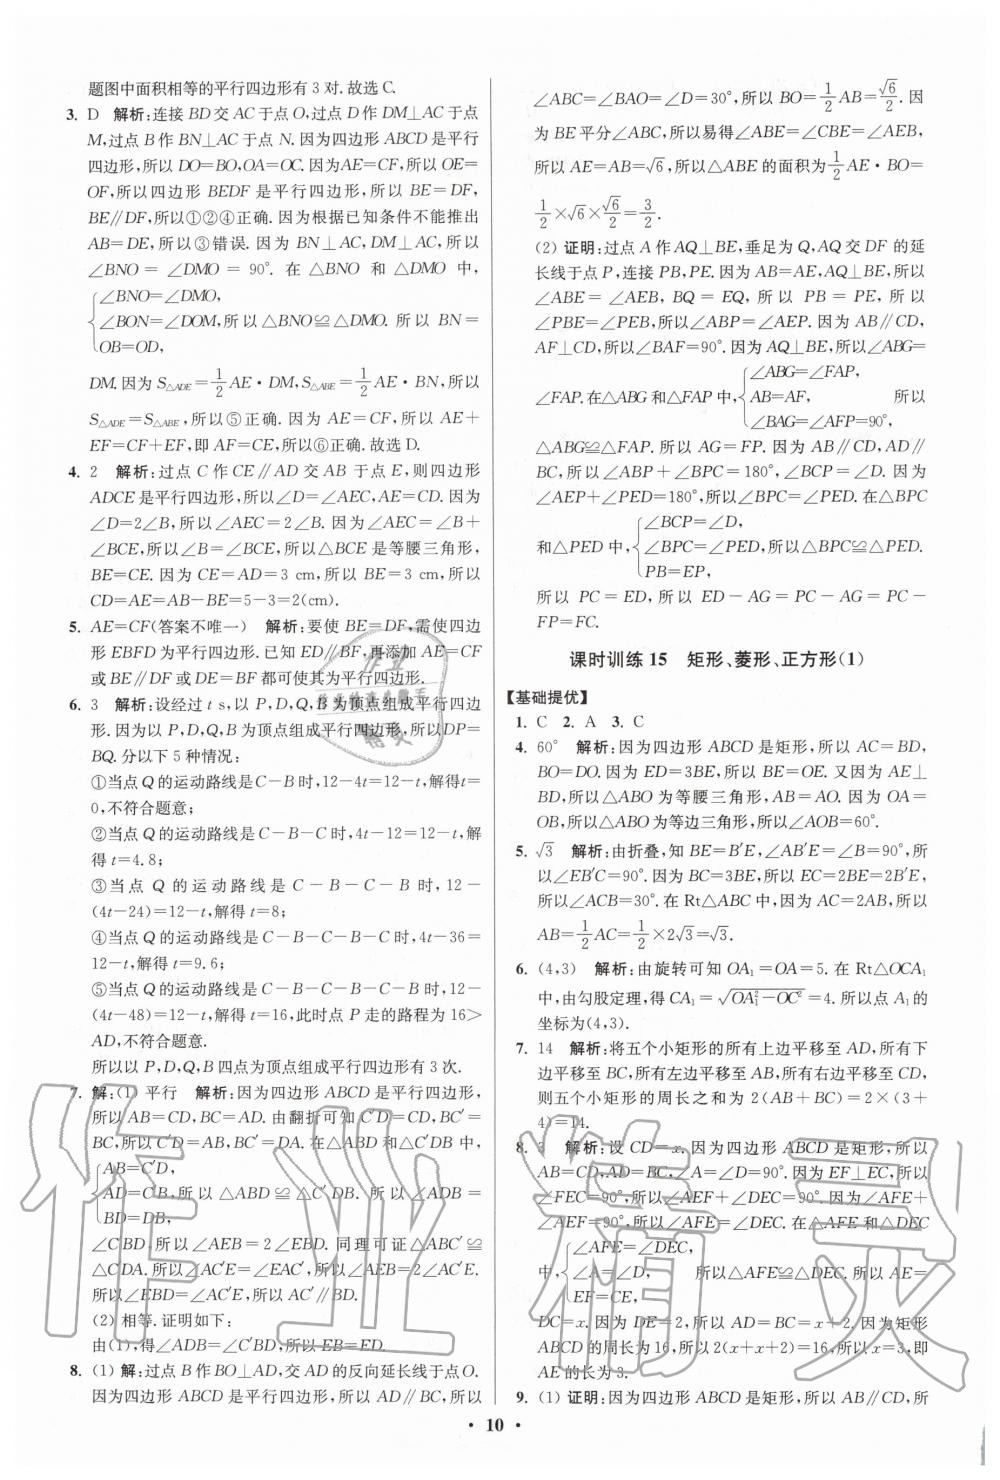 题图中面积相等的平行四边形有 3 对. 故选 C.
3. D 解析:连接 BD 交 AC 于点 O,过点 D 作 DM⊥AC 于点
M,过点 B 作 BN⊥AC 于点 N. 因为四边形 ABCD 是平行
四边形,所以 DO=BO,OA=OC. 因为AE=CF,所以 OE=
OF,所以四边形 BEDF 是平行四边形,所以 BE=DF,
BE∥DF,所以①②④正确. 因为根据已知条件不能推出
AB=DE,所以③错误. 因为 BN⊥AC,DM⊥AC,所以
∠BNO=∠DMO=90°. 在△BNO 和△DMO 中,
∠BNO=∠DMO,
∠BON=∠DOM,所以△BNO≌△DMO. 所以 BN=
OB=OD,
DM. 因为 S△ADE=1/2 AE·DM,S△ABE=1/2 AE·BN,所以
S△ADE=S△ABE,所以⑤正确. 因为 AE=CF,所以 AE+
EF=CF+EF,即 AF=CE,所以⑥正确. 故选 D.
4. 2 解析:过点 C 作 CE∥AD 交 AB 于点 E,则四边形
ADCE 是平行四边形,所以∠D=∠AEC,AE=CD. 因为
∠D=2∠B,所以∠AEC=2∠B. 因为∠AEC=∠B+
∠BCE,所以∠B=∠BCE,所以△BCE 是等腰三角形,
BE=CE. 因为 CE=AD=3 cm,所以 BE=3 cm,所以
CD=AE=AB-BE=5-3=2(cm).
5. AE=CF(答案不唯一) 解析:要使 BE=DF,需使四边
形 EBFD 为平行四边形. 已知 ED∥BF,再添加 AE=CF
或 BE∥DF 或 DE=BF 都可使其为平行四边形.
6. 3 解析:设经过 t s,以 P,D,Q,B 为顶点组成平行四边
形. 因为以 P,D,Q,B 为顶点组成平行四边形,所以DP=
BQ. 分以下 5 种情况:
①当点 Q 的运动路线是 C-B 时,12-4t=12-t,解得t=
0,不符合题意;
②当点 Q 的运动路线是 C-B-C 时,4t-12=12-t,解
得 t=4.8;
③当点 Q 的运动路线是 C-B-C-B 时,12-
(4t-24)=12-t,解得 t=8;
④当点 Q 的运动路线是 C-B-C-B-C 时,4t-36=
12-t,解得 t=9.6;
⑤当点 Q 的运动路线是 C-B-C-B-C-B 时,12-
(4t-48)=12-t,解得 t=16,此时点 P 走的路程为 16>
AD,不符合题意.
所以以 P,D,Q,B 四点为顶点组成平行四边形有 3 次.
7. 解:(1) 平行 解析:因为四边形 ABCD 是平行四边形,
所以 AB=CD,BC=AD. 由翻折可知 C′D=CD,BC′=
BC,所以 C′D=AB,BC′=DA. 在△ABD和△C′DB 中,
AB=C′D,
AD=C′B,所以△ABD≌△C′DB. 所以∠ADB=
BD=DB,
∠C′BD,所以∠AEB=2∠EBD. 同理可证△ABC′≌
△C′DA. 所以∠AC′E=∠EAC′,所以∠AEB=2∠AC′E.
所以∠EBD=∠AC′E,所以 AC′∥BD.
(2) 相等. 证明如下:
由(1),得∠ADB=∠C′BD,所以 EB=ED.
8. (1) 解:过点 B 作 BO⊥AD,交 AD 的反向延长线于点 O.
因为四边形 ABCD 是平行四边形,所以 AD∥BC,所以
∠ABC=∠BAO=∠D=30°,所以 BO=1/2 AB=√6/2. 因
为 BE 平分∠ABC,所以易得∠ABE=∠CBE=∠AEB,
所以 AE=AB=√6,所以△ABE 的面积为1/2 AE·BO=
1/2×√6×√6/2=3/2.
(2) 证明:过点 A 作 AQ⊥BE,垂足为 Q,AQ 交 DF 的延
长线于点 P,连接 PB,PE. 因为 AB=AE,AQ⊥BE,所以
∠ABE=∠AEB,BQ=EQ,所以 PB=PE,所以
∠PBE=∠PEB,所以∠ABP=∠AEP. 因为 AB∥CD,
AF⊥CD,所以∠BAF=90°. 因为 AQ⊥BE,所以∠ABG=
∠ABG=∠FAP,
∠FAP. 在△ABG 和△FAP 中, AB=AF, 所以
∠BAG=∠AFP=90°,
△ABG≌△FAP. 所以 AG=FP. 因为 AB∥CD,AD∥
BC,所以∠ABP+∠BPC=180°,∠BCP=∠D. 因为
∠AEP+∠PED=180°,所以∠BPC=∠PED. 在△BPC
∠BCP=∠D,
和△PED 中, ∠BPC=∠PED,所以△BPC≌△PED.
PB=EP,
所以 PC=ED,所以 ED-AG=PC-AG=PC-
FP=FC.
课时训练 15 矩形、菱形、正方形(1)
【基础提优】
1. C 2. A 3. C
4. 60° 解析:因为四边形 ABCD 是矩形,所以 AC=BD,
BO=DO. 因为 ED=3BE,所以 BE=OE. 又因为 AE⊥
BD,所以△ABO 为等腰三角形,AB=AO. 因为 OA=
OB,所以△ABO 为等边三角形,所以∠AOB=60°.
5. √3 解析:由折叠,知 BE=B′E,∠AB′E=∠B=90°,所
以∠EB′C=90°. 因为 BC=3BE,所以 EC=2BE=2B′E,
所以∠ACB=30°. 在 Rt△ABC 中,因为 AC=2AB,所以
AB=1/2 AC=1/2×2√3=√3.
6. (4,3) 解析:由旋转可知 OA₁=OA=5. 在 Rt△OCA₁
中,由勾股定理,得 CA₁=√(OA₁²-OC²)=4. 所以点 A₁的
坐标为(4,3).
7. 14 解析:将五个小矩形的所有上边平移至 AD,所有下
边平移至 BC,所有左边平移至 AB,所有右边平移至 CD,
则五个小矩形的周长之和为 2(AB+BC)=2×(3+
4)=14.
8. 3 解析:设 CD=x. 因为四边形 ABCD 是矩形,所以
AB=CD,AD=BC,∠A=∠D=90°. 因为 EF⊥EC,所以
∠FEC=90°,所以∠AEF+∠DEC=90°. 因为∠AFE+
∠AEF=90°,所以∠AFE=∠DEC. 在△AFE 和△DEC
∠AFE=∠DEC,
中, ∠A=∠D, 所以△AFE≌△DEC. 所以 AE=
EF=CE,
DC=x. 因为 DE=2,所以 AD=BC=x+2. 因为矩形
ABCD 的周长为 16,所以 2(x+x+2)=16,所以 x=3,即
AE 的长为 3.
9. (1) 证明:因为四边形 ABCD 是矩形,所以 AB∥CD,所
· 10 ·
作业精灵